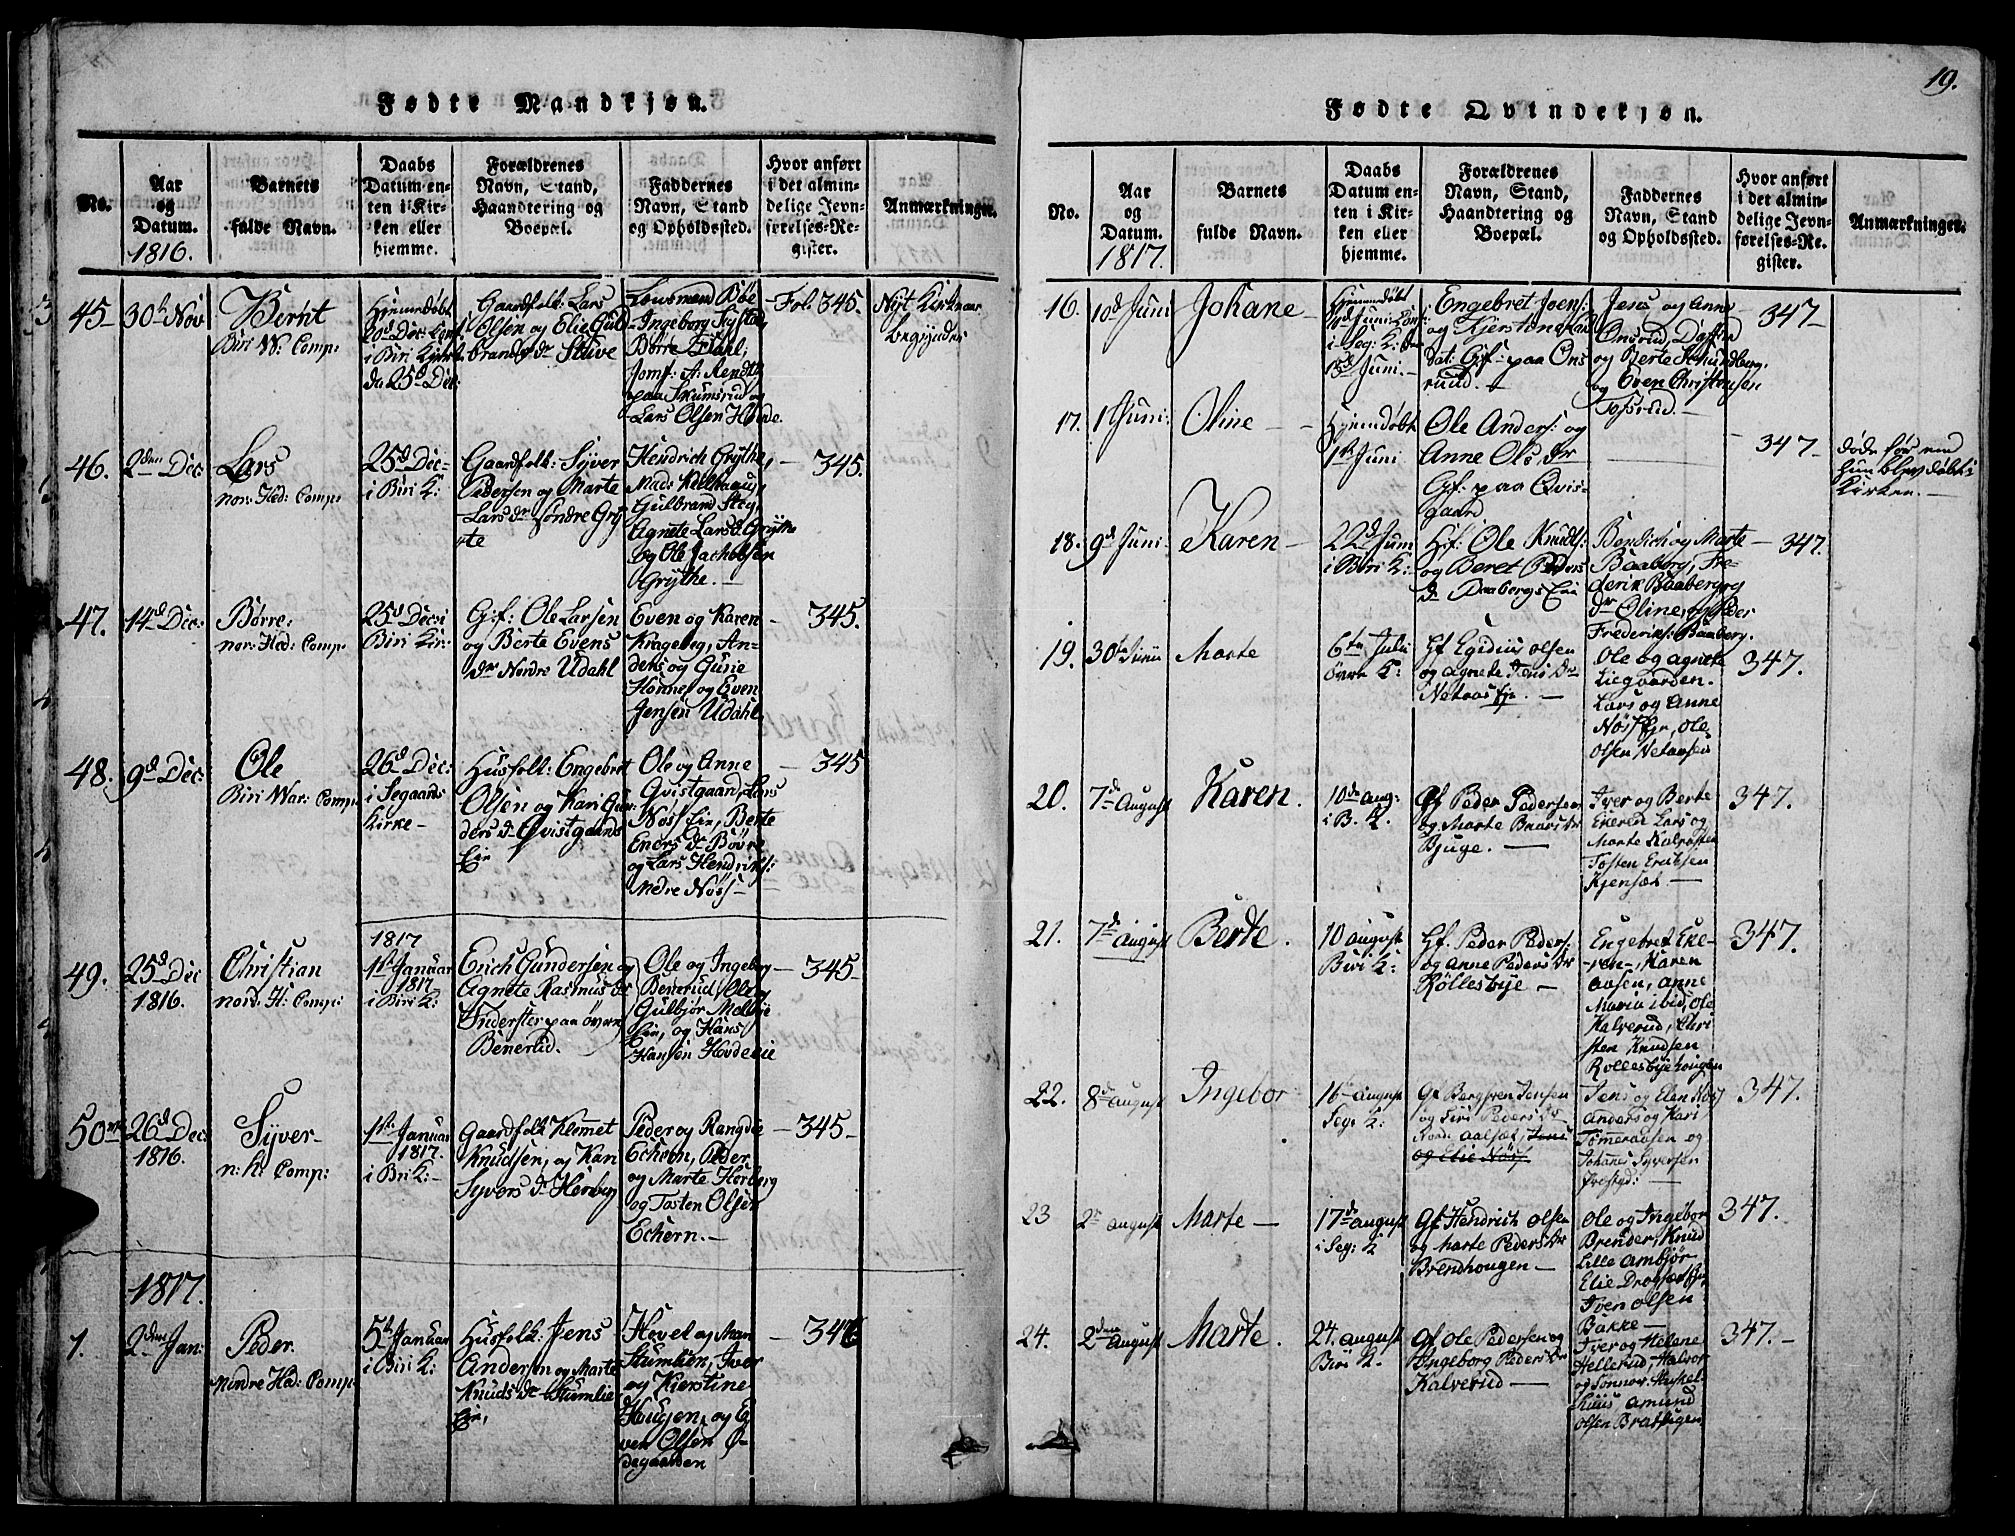 Fødte Mandkjøn.
No.
Aar
og
Datum.
1816.
Barnets
fulde Navn.
Daabs
Datum en-
ten i Kir-
ken eller
hjemme.
Forældrenes
Navn, Stand,
Haandtering og
Boepæl.
Faddernes
Navn, Stand
og Opholdssted.
Hvor anført
i det almin-
delige Jevn-
førelses-Re-
gister.
Anmærkninger.
45
30te Nov
Bernt
Biri W: Comp:
i Biri
da 25d Dec:
Gaardfolk: Lars
Olsen og Elie Guld
brands dr Stuve
Ingeborg
Børre Dahl,
paa Skumsrud og
Lars Olsen
Fol: 345.
Nyt Kirkeaar
begyndes
46.
2den Dec:
Lars
nor: Hed: Comp:
25d Dec:
i Biri K:
Gaardfolk: Syver
Pedersen og Marte
Lars dr søndre Gry
te
Hendrich Grythe,
Mads
Gulbrand
Agnete Lars d. Grythe
og Ole Jachobsen
Grythe.
345.
47.
14d Dec:
Børre
nor: Hed: Comp:
25d Dec: i
Biri Kir:
G:f: Ole Larsen
og Berte Evens
dr Nordre Udahl
Even og Karen
Krageberg, An-
ders og Gurie
Honne og Even
Jensen Udahl
345.
48.
9d Dec:
Ole
Biri War: Comp:
26d Dec:
i Segaards
Kirke
Husfolk: Engebret
Olsen og Kari Gun-
ders dr Qvistgaards
Eie
Ole og Anne
Qvistgaard, Lars
Nøss Eie, Berte
Enders dr Bøvre
og Lars Hendriks:
Nedre Nøss
345
49.
25d Dec
1816.
Christian
nord: H: Comp:
1817
1te Januar
1817
i Biri K:
Erich Gundersen og
Agnete Rasmus dr
Inderster paa øvre
Benerud.
Ole og Ingebor
Benerud, Ole og
Gulbjør Melbye
Eie, og Hans
Hansen Hovdeeie
345
50
26d Dec
1816.
Syver
n: h: Comp:
1te Januar
1817.
i Biri K:
Gaardfolk Klemet
Knudsen, og Kari
Syvers dr Horberg
Peder og Rangdie
Echern, Peder
og Marte Horberg
og Tosten Olsen
Echern.
345
1817.
1.
2den Jan:
Peder
Nordre Had: Comp:
5te Januar
i Biri K:
Husfolk: Jens
Andersen og Marte
Knuds dr Stumlie
Eie,
Hovel og Mari
Stumlien, Iver
og Kierstine
Haugen, og E-
ven Olsen Ø-
degaarden
346
19.
Fødte Qvindekjøn.
No.
Aar
og
Datum.
1817.
Barnets
fulde Navn.
Daabs
Datum en-
ten i Kir-
ken eller
hjemme.
Forældrenes
Navn, Stand,
Haandtering og
Boepæl.
Faddernes
Navn, Stand
og Opholdssted.
Hvor anført
i det almin-
delige Jevn-
førelses-Re-
gister.
Anmærkninger.
16
10d Juni
Johane
i Seg: K: den
15d Juni.
Engebret Joens:
og Kjerstine
dat: Gf: paa Ons
ruud.
Jens og Anne
Onsrud
og Berte Smundberg,
og Even Christensen
Tossrud.
347
17.
1 Juni:
Oline
Hjemdøbt
1te Juni
Ole Anders: og
Anne Ols dr
Gf: paa Qvis-
gaard
347
døde før end
hun blev døbt i
Kirken.
18.
9d Juni
Karen
22d Juni
i Biri K:
H:f: Ole Knuds:
og Beret Peders
dr Baabergs Eie
Bendich og Marte
Baaberg, Fre-
derik Baaberg og
dr Oline, og Peder
Frederiks: Baaberg.
347.
19.
30te Junii
Marte
6te Julii
øvre K:
Hf Egidius Olsen
og Agnete Jens dr
Netaas Eje.
Ole og Agnete
Liegaarden.
Lars og Anne
Nøss Eje, Ole
Olsen Netaasen
347.
20.
7de August
Karen.
10de Aug:
i B. K.
Gf Peder Pedersen
og Marte Baars dr
Bjuge.
Iver og Berte
Ekeren Lars og
Marte
Tosten Eriksen
Kjensæt
347.
21.
7de August
Berte.
10 August
Biri K:
Hf. Peder Peders:
og Anne Peders dr
Røllesbye
Engebret Eke-
ren, Karen
Aasen, Anne
Maria ibid, Ole
Kalverud, Chri
sten Knudsen
Rollesbyehougen
347.
22.
8de August
Ingebor
16 August
Seg: K:
Gf Bergsven Jensen
og Siri Peders dr
Nord: Aalset, Jens
og Elie Nøss
Jens og Elen Nøss
Anders og Kari
Tømeraasen og
Johanes Syversen
347.
23
2n August
Marte
17de August
i Seg: K
Gf Hendrich Olsen
og Marte Peders dr
Brendhougen
Ole og Ingebor
Brender, Knud
Lille Ambjør
Elie Eje
Iver Olsen
Bakke
347.
24.
2den August
Marte.
24. August
Biri K.
Gf Ole Pedersen og
Ingeborg Peders dr
Kalverud
Iver og Helene
Hellerud, Halvor
og Sønnov
Amund
Olsen
347.